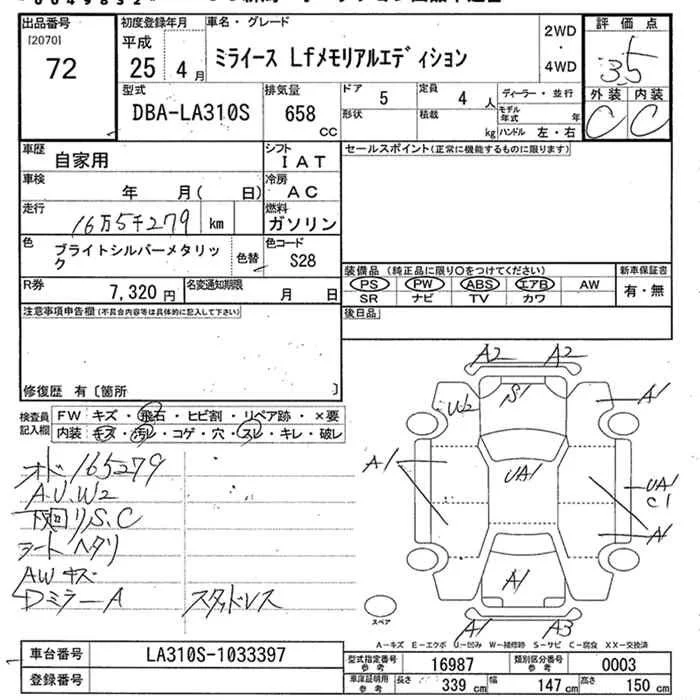 出品番号
[2070]
72
初度登録年月
平成
25 4月
車名・グレード
ミライース Lfメモリアルエディション
2WD
・
4WD
評価点
3.5
外装 内装
C C
型式
DBA-LA310S
排気量
658
CC
ドア 5
定員 4 人
形状
積載 kg
ディーラー・並行
モデル年式 年
ハンドル 左・右
車歴
自家用
シフト
IAT
車検
年 月( 日)
冷房
AC
走行
16万5千279 km
燃料
ガソリン
色
ブライトシルバーメタリック
色替
色コード
S28
R券
7,320 円
名変通知期限
月 日
セールスポイント(正常に機能するものに限ります)
装備品 (純正品に限り○をつけてください)
PS PW ABS エアB AW
SR ナビ TV カワ
新車保証書
有・無
後日品
注意事項申告欄(不具合内容等は具体的に記入して下さい)
修復歴 有〔箇所 〕
検査員記入欄
FW キズ・飛石・ヒビ割・リペア跡・×要
内装 キズ・汚レ・コゲ・穴・スレ・キレ・破レ
オド 165279
A.U.W2
下回り S.C
シートヘタリ
AW キズ
Dミラー A スタッドレス
A2 A2
U2
S1
A1
A1
UA1
UA1
C1
A1
A1
A1 A3
スペア
A−キズ E−エクボ U−凹み W−補修跡 S−サビ C−腐食 XX−交換済
車台番号
LA310S-1033397
登録番号
型式指定番号
参考
16987
類別区分番号
参考
0003
車庫証明用
参考
長さ 339 cm
幅 147 cm
高さ 150 cm